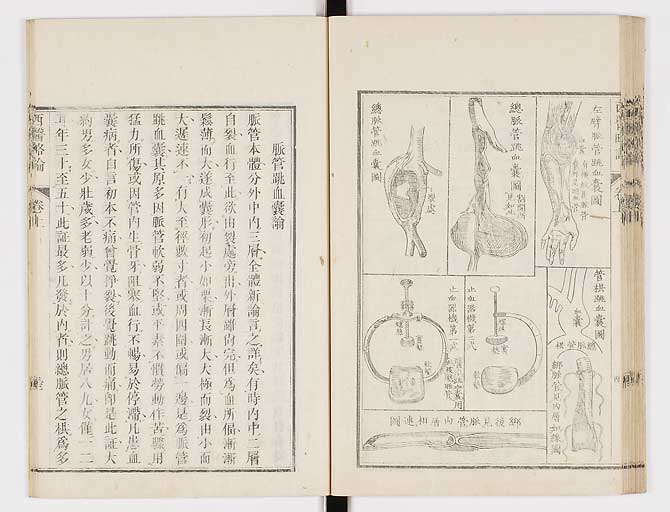 左臂脈管跳血囊圖
血囊
總脈管跳血囊圖
割開所見如此
總脈管跳血囊圖
裂處
管栱跳血囊圖
血囊
總脈管栱
綁脈管見內層如線圖
止血器機第二式
螺絲
止血器機第一式
螺絲
綁後見脈管內層相連圖
脈管跳血囊論
脈管本體分外中內三層全體新論言之詳矣有時內中二層
自裂血行至此欲由裂處旁出外層雖尚完但為血所偪漸漸
鬆薄而大遂成囊形初起小如粟漸長漸大大極而裂由小而
大遲速不一有大至徑數寸者或周四闊或偏一邊是為脈管
跳血囊其原多因脈管軟弱不堅或平素不慣勞動作苦驟用
猛力所傷或因管內生骨牙阻寒血行不暢易於停滯凡患血
囊病者自言初本不痛曾覺掙裂後覺跳動而痛卽是此証大
約男多女少壯歲多老弱少以十分計之男居八九女僅一二
耳年三十至五十此証最多凡發於內者則總脈管之栱為多
西醫略論 卷中